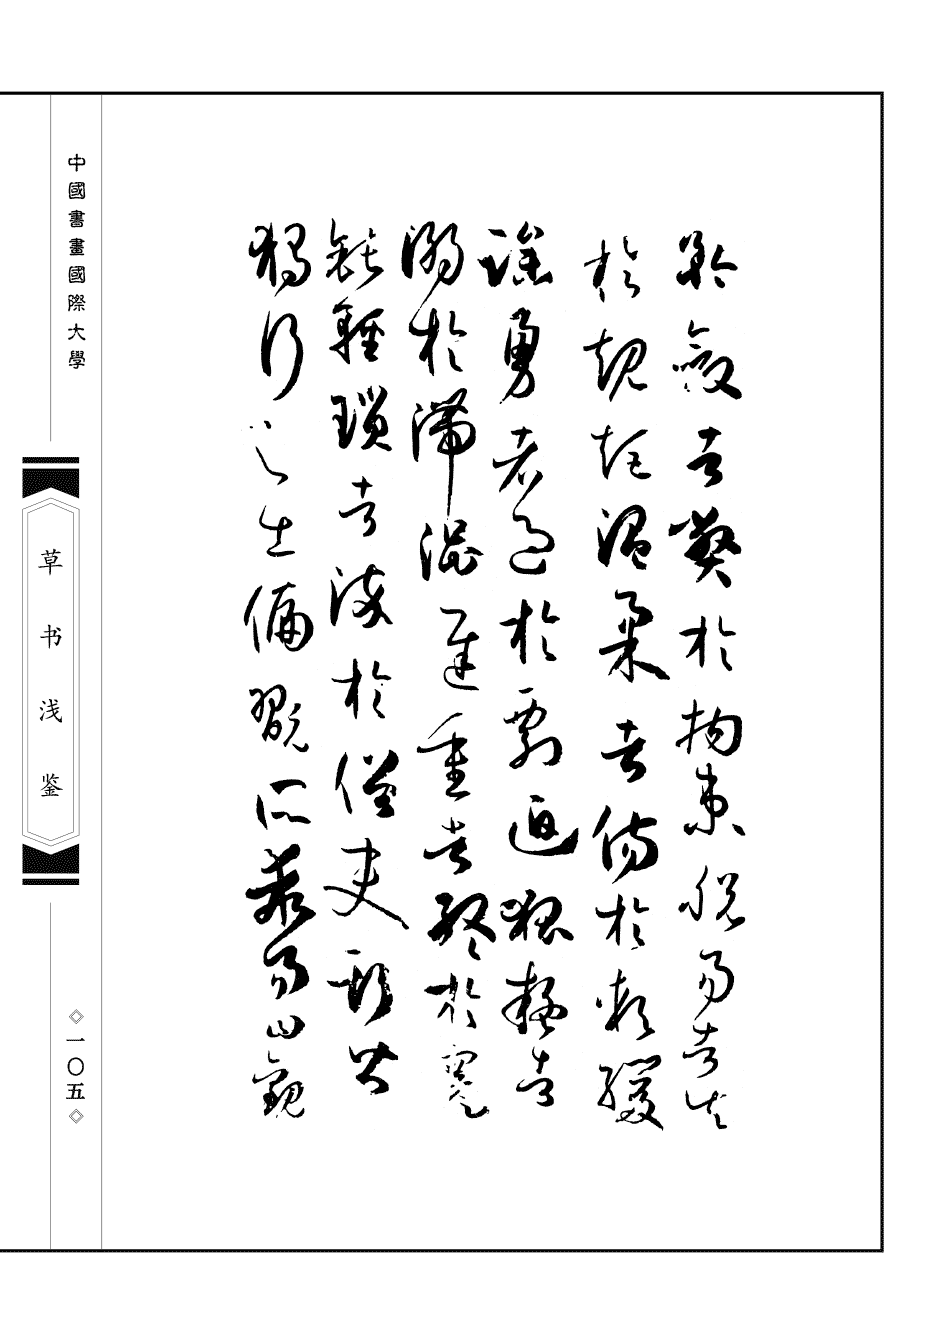 矜斂者弊於拘束脫易者失
於規矩溫柔者傷於軟緩
躁勇者過於剽迫狐疑者
溺於滯澀遲重者終於蹇
鈍輕瑣者染於俗吏斯皆
獨行之士偏翫所乖易曰觀
中國書畫國際大學
草书浅鉴
一〇五